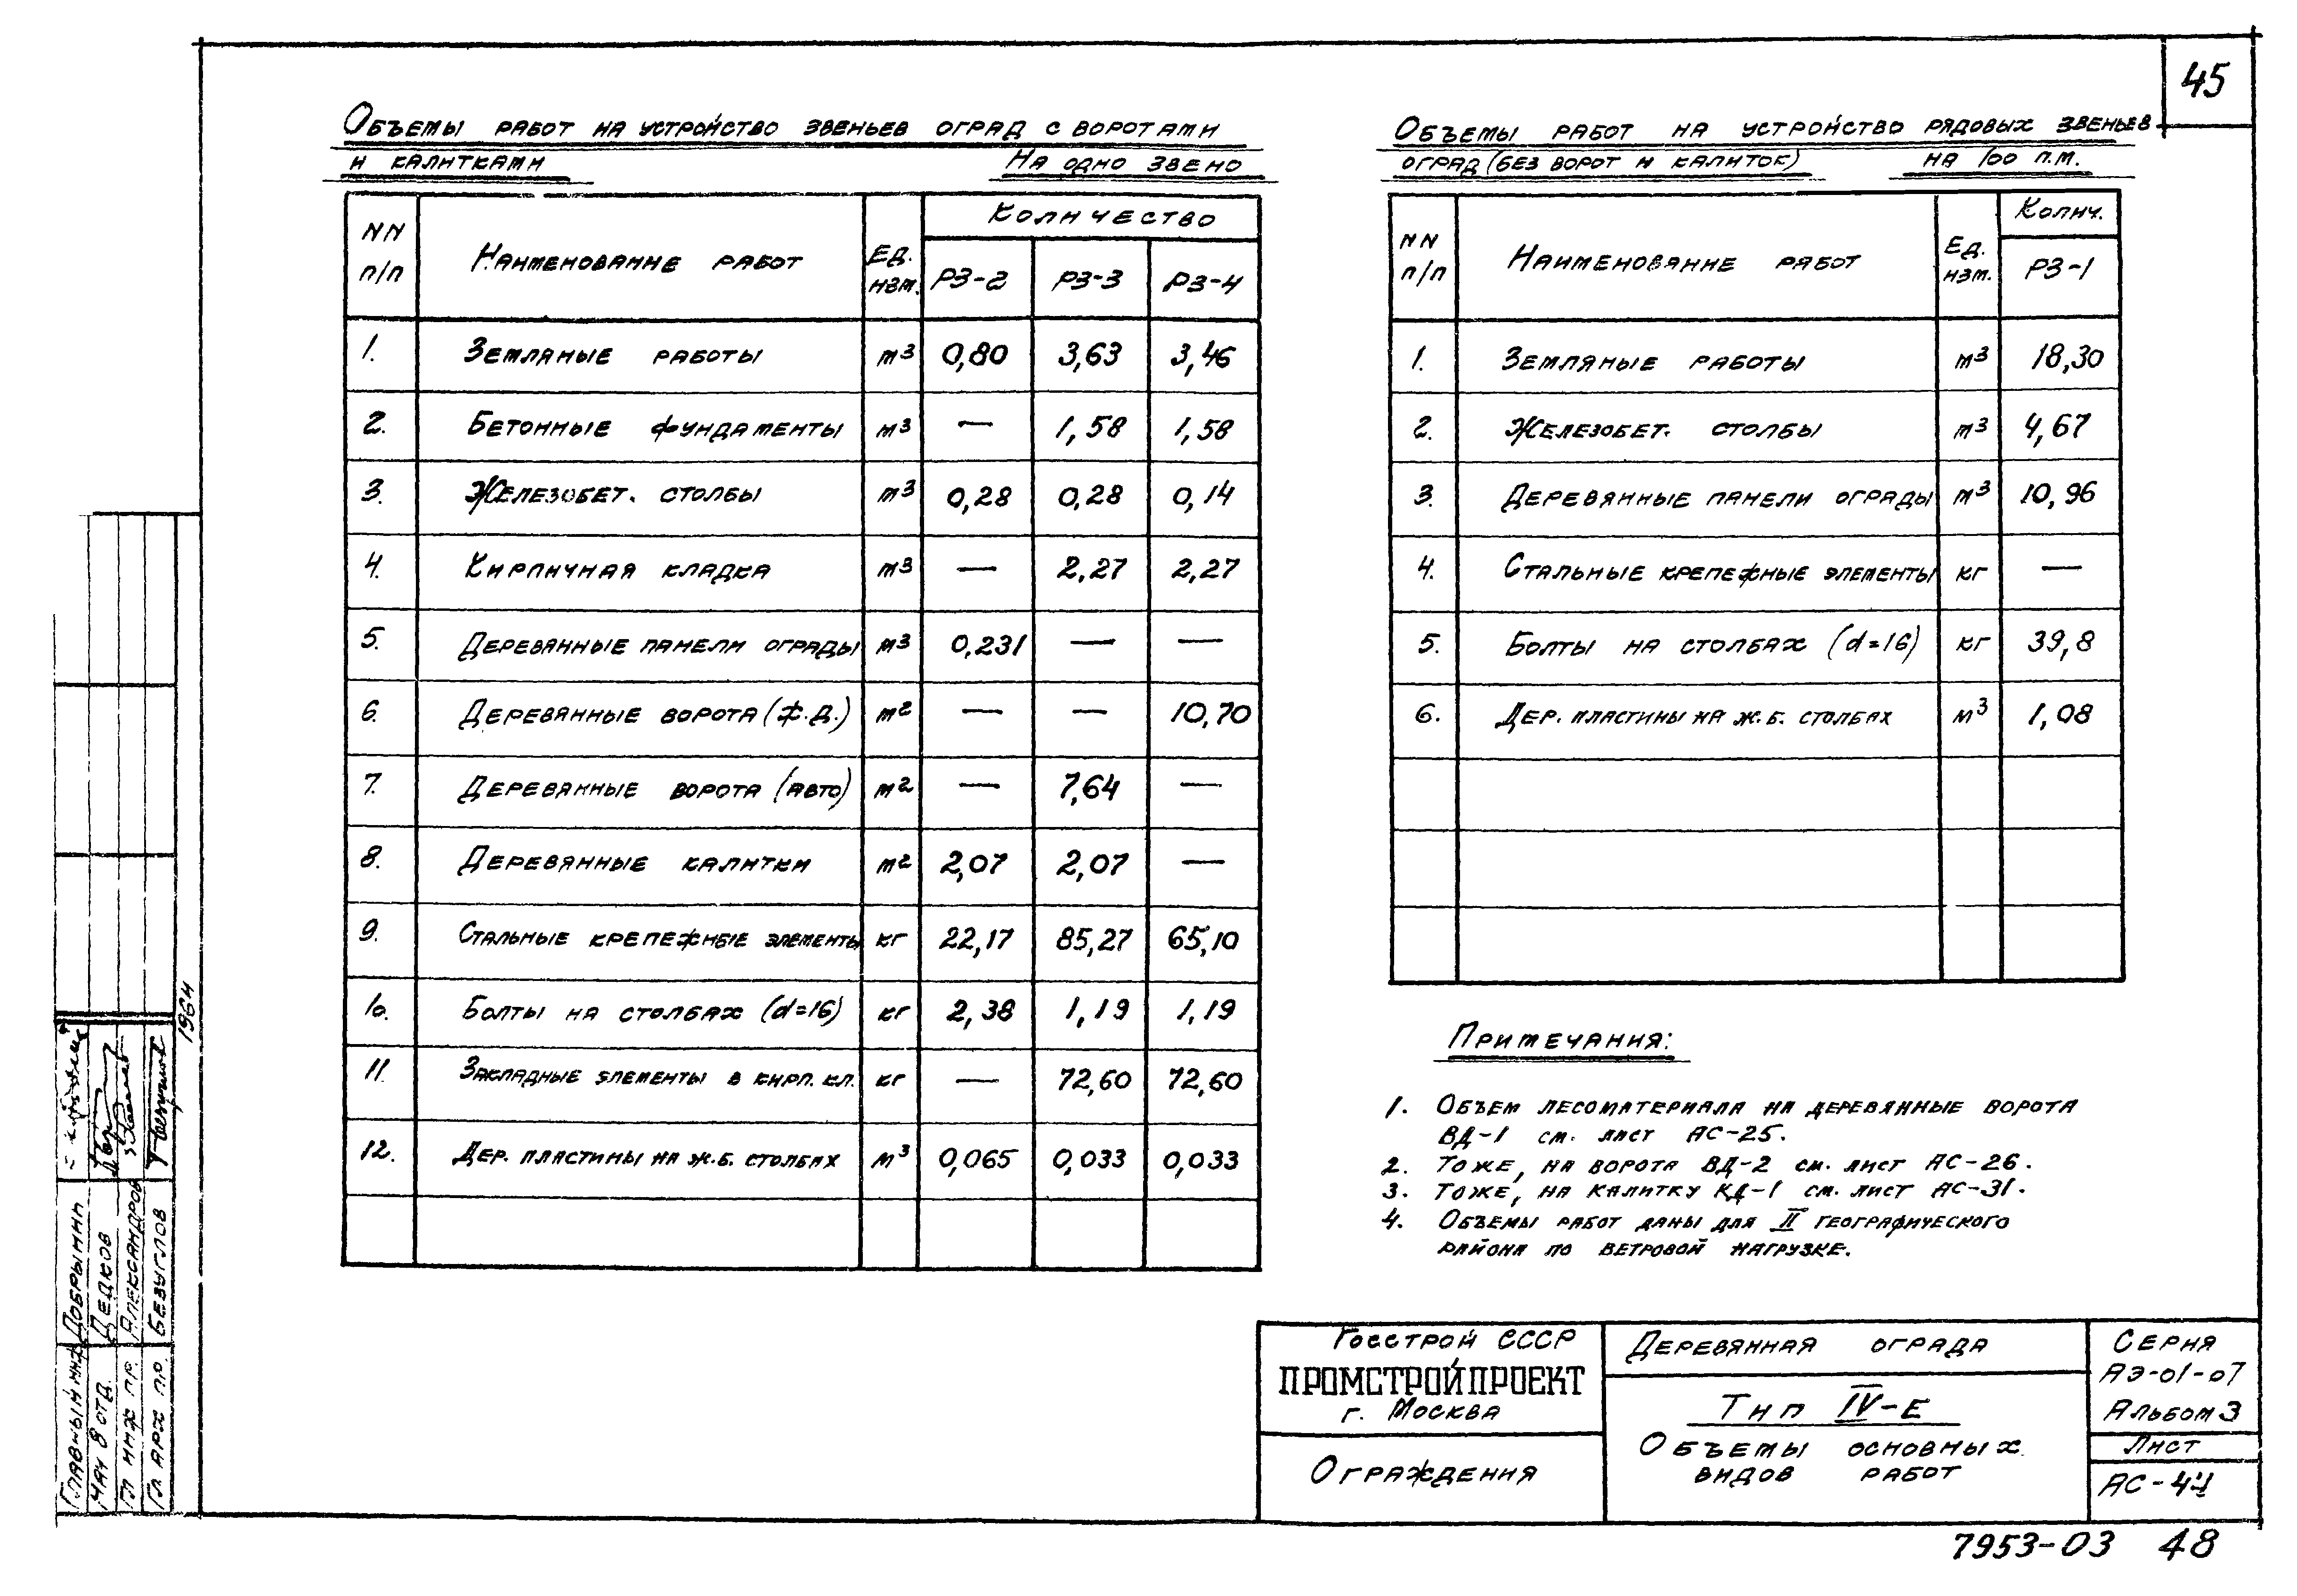 45
Объемы работ на устройство звеньев оград с воротами
и калитками На одно звено
NN п/п Наименование работ Ед. изм. Количество
РЗ-2 РЗ-3 РЗ-4
1. Земляные работы м3 0,80 3,63 3,46
2. Бетонные фундаменты м3 — 1,58 1,58
3. Железобет. столбы м3 0,28 0,28 0,14
4. Кирпичная кладка м3 — 2,27 2,27
5. Деревянные панели ограды м3 0,231 — —
6. Деревянные ворота (ж.д.) м2 — — 10,70
7. Деревянные ворота (авто) м2 — 7,64 —
8. Деревянные калитки м2 2,07 2,07 —
9. Стальные крепежные элементы кг 22,17 85,27 65,10
10. Болты на столбах (d=16) кг 2,38 1,19 1,19
11. Закладные элементы в кирп. кл. кг — 72,60 72,60
12. Дер. пластины на ж.б. столбах м3 0,065 0,033 0,033
Объемы работ на устройство рядовых звеньев
оград (без ворот и калиток) на 100 п.м.
NN п/п Наименование работ Ед. изм. Колич.
РЗ-1
1. Земляные работы м3 18,30
2. Железобет. столбы м3 4,67
3. Деревянные панели ограды м3 10,96
4. Стальные крепежные элементы кг —
5. Болты на столбах (d=16) кг 39,8
6. Дер. пластины на ж.б. столбах м3 1,08
Примечания:
1. Объем лесоматериала на деревянные ворота
ВД-1 см. лист АС-25.
2. Тоже, на ворота ВД-2 см. лист АС-26.
3. Тоже, на калитку КД-1 см. лист АС-31.
4. Объемы работ даны для II географического
района по ветровой нагрузке.
Госстрой СССР
ПРОМСТРОЙПРОЕКТ
г. Москва
Ограждения
Деревянная ограда
Тип IV-Е
Объемы основных
видов работ
Серия
АЭ-01-07
Альбом 3
Лист
АС-44
7953-03 48
1964
Главный инж. Добрынин
Нач 8 отд. Дедков
Гл инж пр. Александров
Гл арх пр. Безуглов